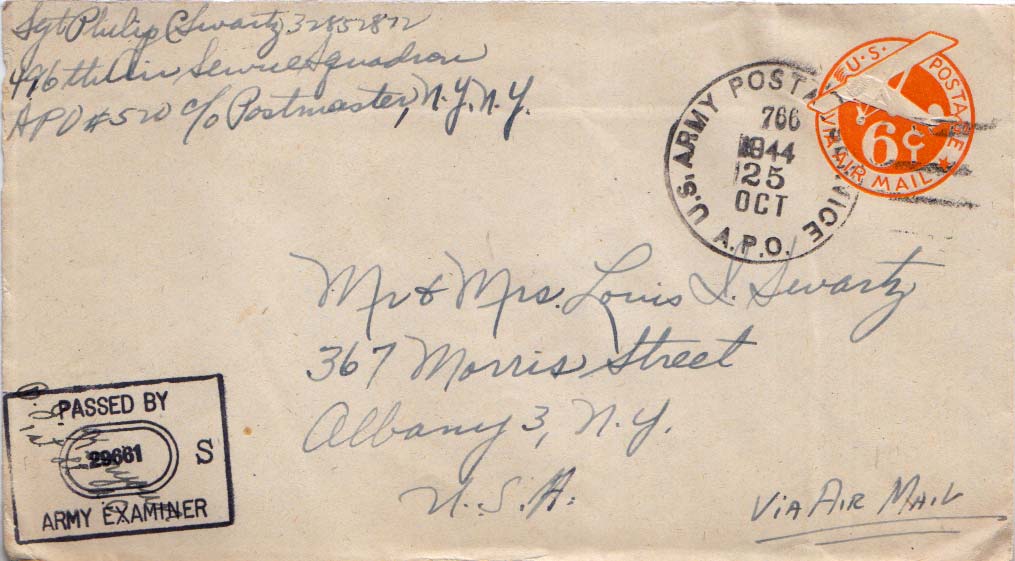 Sgt Philip C Swartz 32852872
496th Air Service Squadron
APO #520 c/o Postmaster, N.Y. N.Y.
U.S. ARMY POSTAL SERVICE
A.P.O.
766
1944
25
OCT
U.S. POSTAGE
6¢
VIA AIR MAIL
Mr & Mrs. Louis I. Swartz
367 Morris Street
Albany 3, N.Y.
U.S.A.
Via Air Mail
PASSED BY
29661 S
ARMY EXAMINER